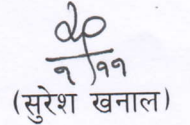 २०
१/११
(सुरेश खनाल)